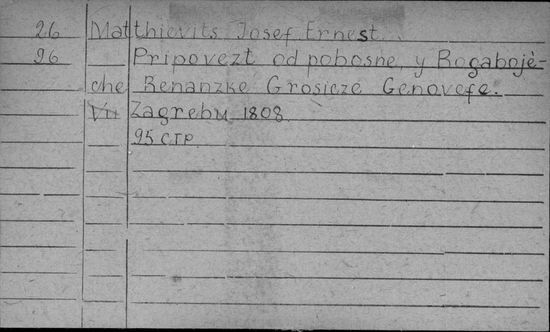 26 Matthievits Josef Ernest.
96 Pripovezt od pobosne, y Bogabojè-
che Renanzke Grosicze Genovefe.
VII Zagrebu 1808
95 стр.